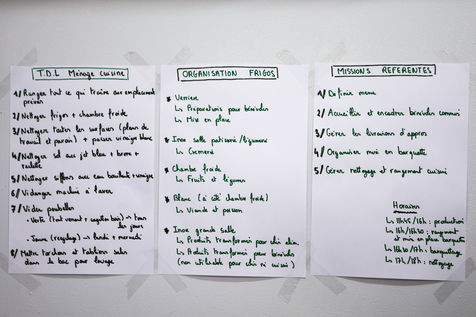 T.D.L Ménage cuisine
1/ Ranger tout ce qui traîne aux emplacement
prévus
2/ Nettoyer frigos + chambre froide
3/ Nettoyer toutes les surfaces (plans de
travail et parois) + passer vinaigre blanc
4/ Nettoyer sol au jet bleu + brosse +
raclette
5/ Nettoyer siffons avec eau bouillante + vinaigre
6/ Vidanger machine à laver
7/ Vider poubelles
- Verte (tout venant + végétau bois) → tous
les jours
- Jaune (recyclage) → lundi + mercredi
8/ Mettre torchons et tabliers sales
dans le bac pour lavage
ORGANISATION FRIGOS
* Verrière
↳ Préparations pour bénévoles
↳ Mise en place
* Inox salle patisserie/légumerie
↳ Cremerie
* Chambre froide
↳ Fruits et légumes
* Blanc (à côté chambre froide)
↳ Viande et poisson
* Inox grande salle
↳ Produits transformés pour chin chin
↳ Produits transformés pour bénévoles
(non utilisable pour chin ni cuisini)
MISSIONS REFERENTES
1/ Définir menu
2/ Accueillir et encadrer bénévoles commis
3/ Gérer les livraisons d'appros
4/ Organiser mise en barquette
5/ Gérer nettoyage et rangement cuisine
Horaires
↳ 11h45/16h : production
↳ 16h/16h30 : rangement
et mise en place barquette
↳ 16h30/17h : barquettage
↳ 17h/18h : nettoyage